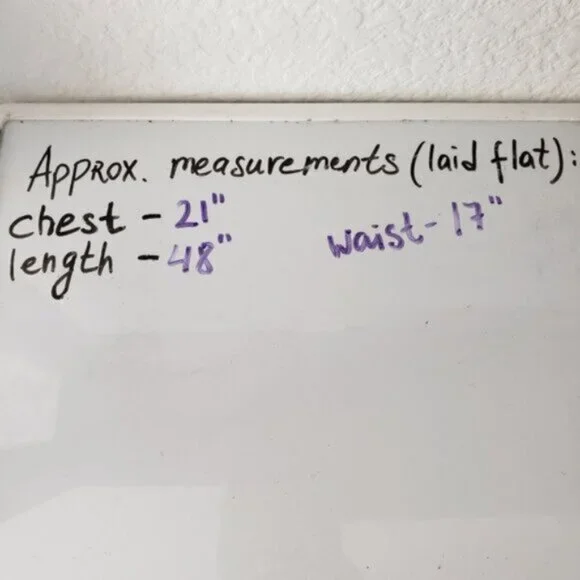 Approx. measurements (laid flat):
chest - 21" waist - 17"
length - 48"